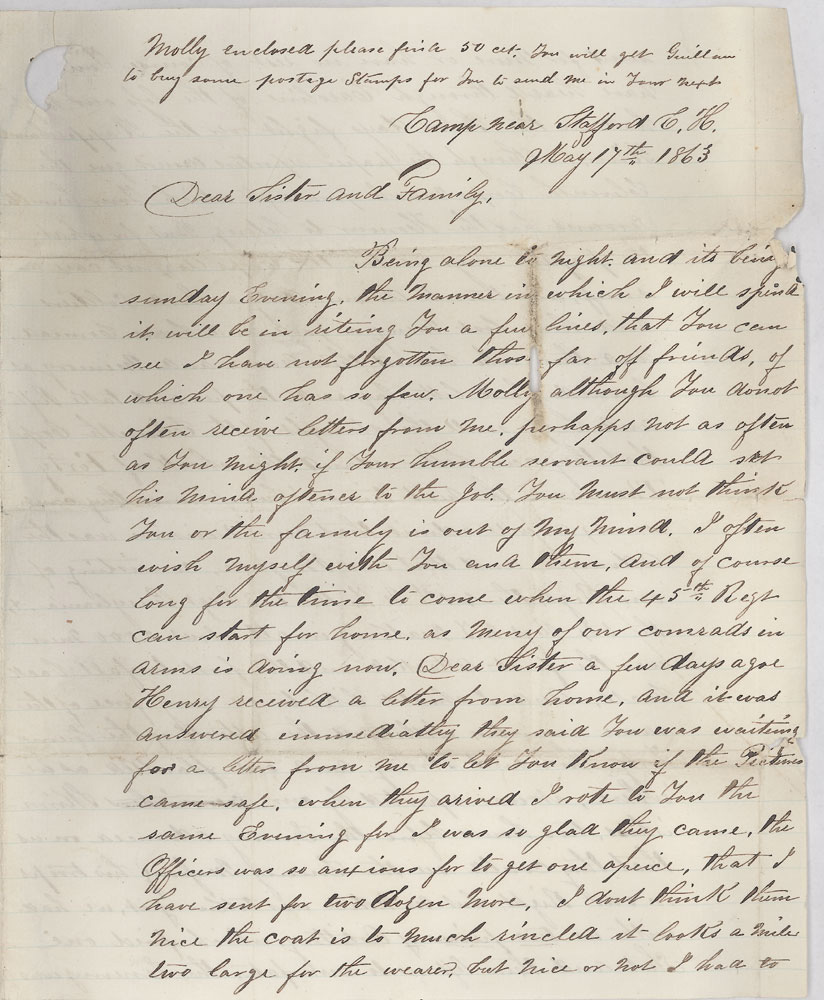 Molly enclosed please find 50 cet. You will get Guillam
to buy some postage Stamps for You to send me in Your next
Camp near Stafford C. H.
May 17th 1863
Dear Sister and Family,
Being alone to night. and its being
sunday Evening. the manner in which I will spend
it. will be in riteing You a few lines, that You can
see I have not forgotten thos far off friends, of
which one has so few. Molly although You donot
often receive letters from me, perhapps not as often
as You might. if Your humble servant could set
his mind oftener to the Job. You must not think
You or the family is out of my mind. I often
wish myself with You and them, and of course
long for the time to come when the 45th Regt
can start for home, as meny of our comrads in
arms is doing now. Dear Sister a few days agoe
Henry received a letter from home, and it was
answered immediatly they said You was waiting
for a letter from me to let You Know if the Pictures
came safe, when they arived I rote to You the
same Evening for I was so glad they came, the
Officers was so anxious for to get one apeice, that I
have sent for two dozen more, I dont think them
nice the coat is to much rincled it looks a mile
two large for the wearer, but nice or not I had to